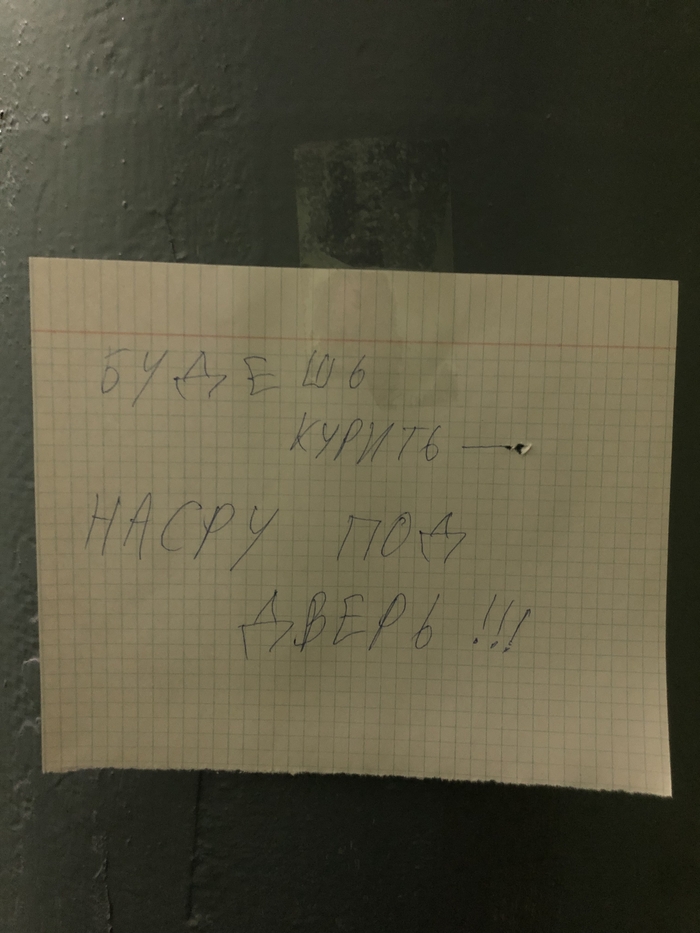 БУДЕШЬ
КУРИТЬ —
НАСРУ ПОД
ДВЕРЬ!!!